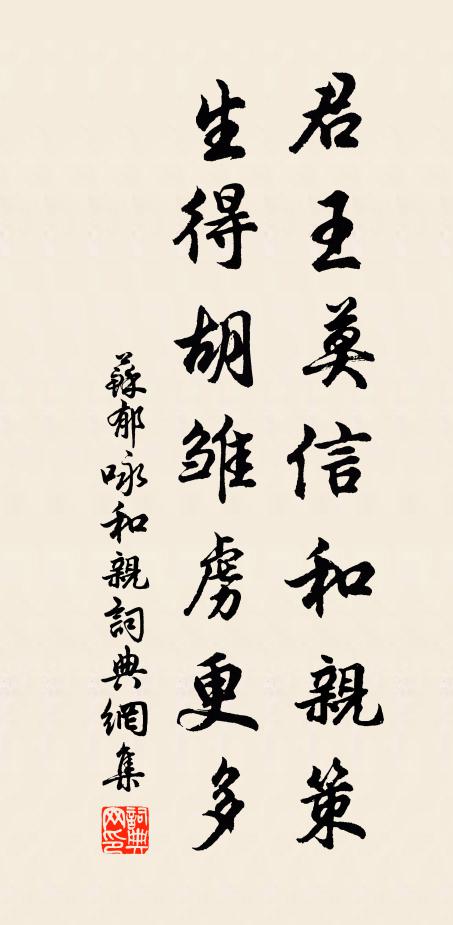 君王莫信和親策
生得胡雛虜更多
蘇郁咏和親詞典網集
詞典网印